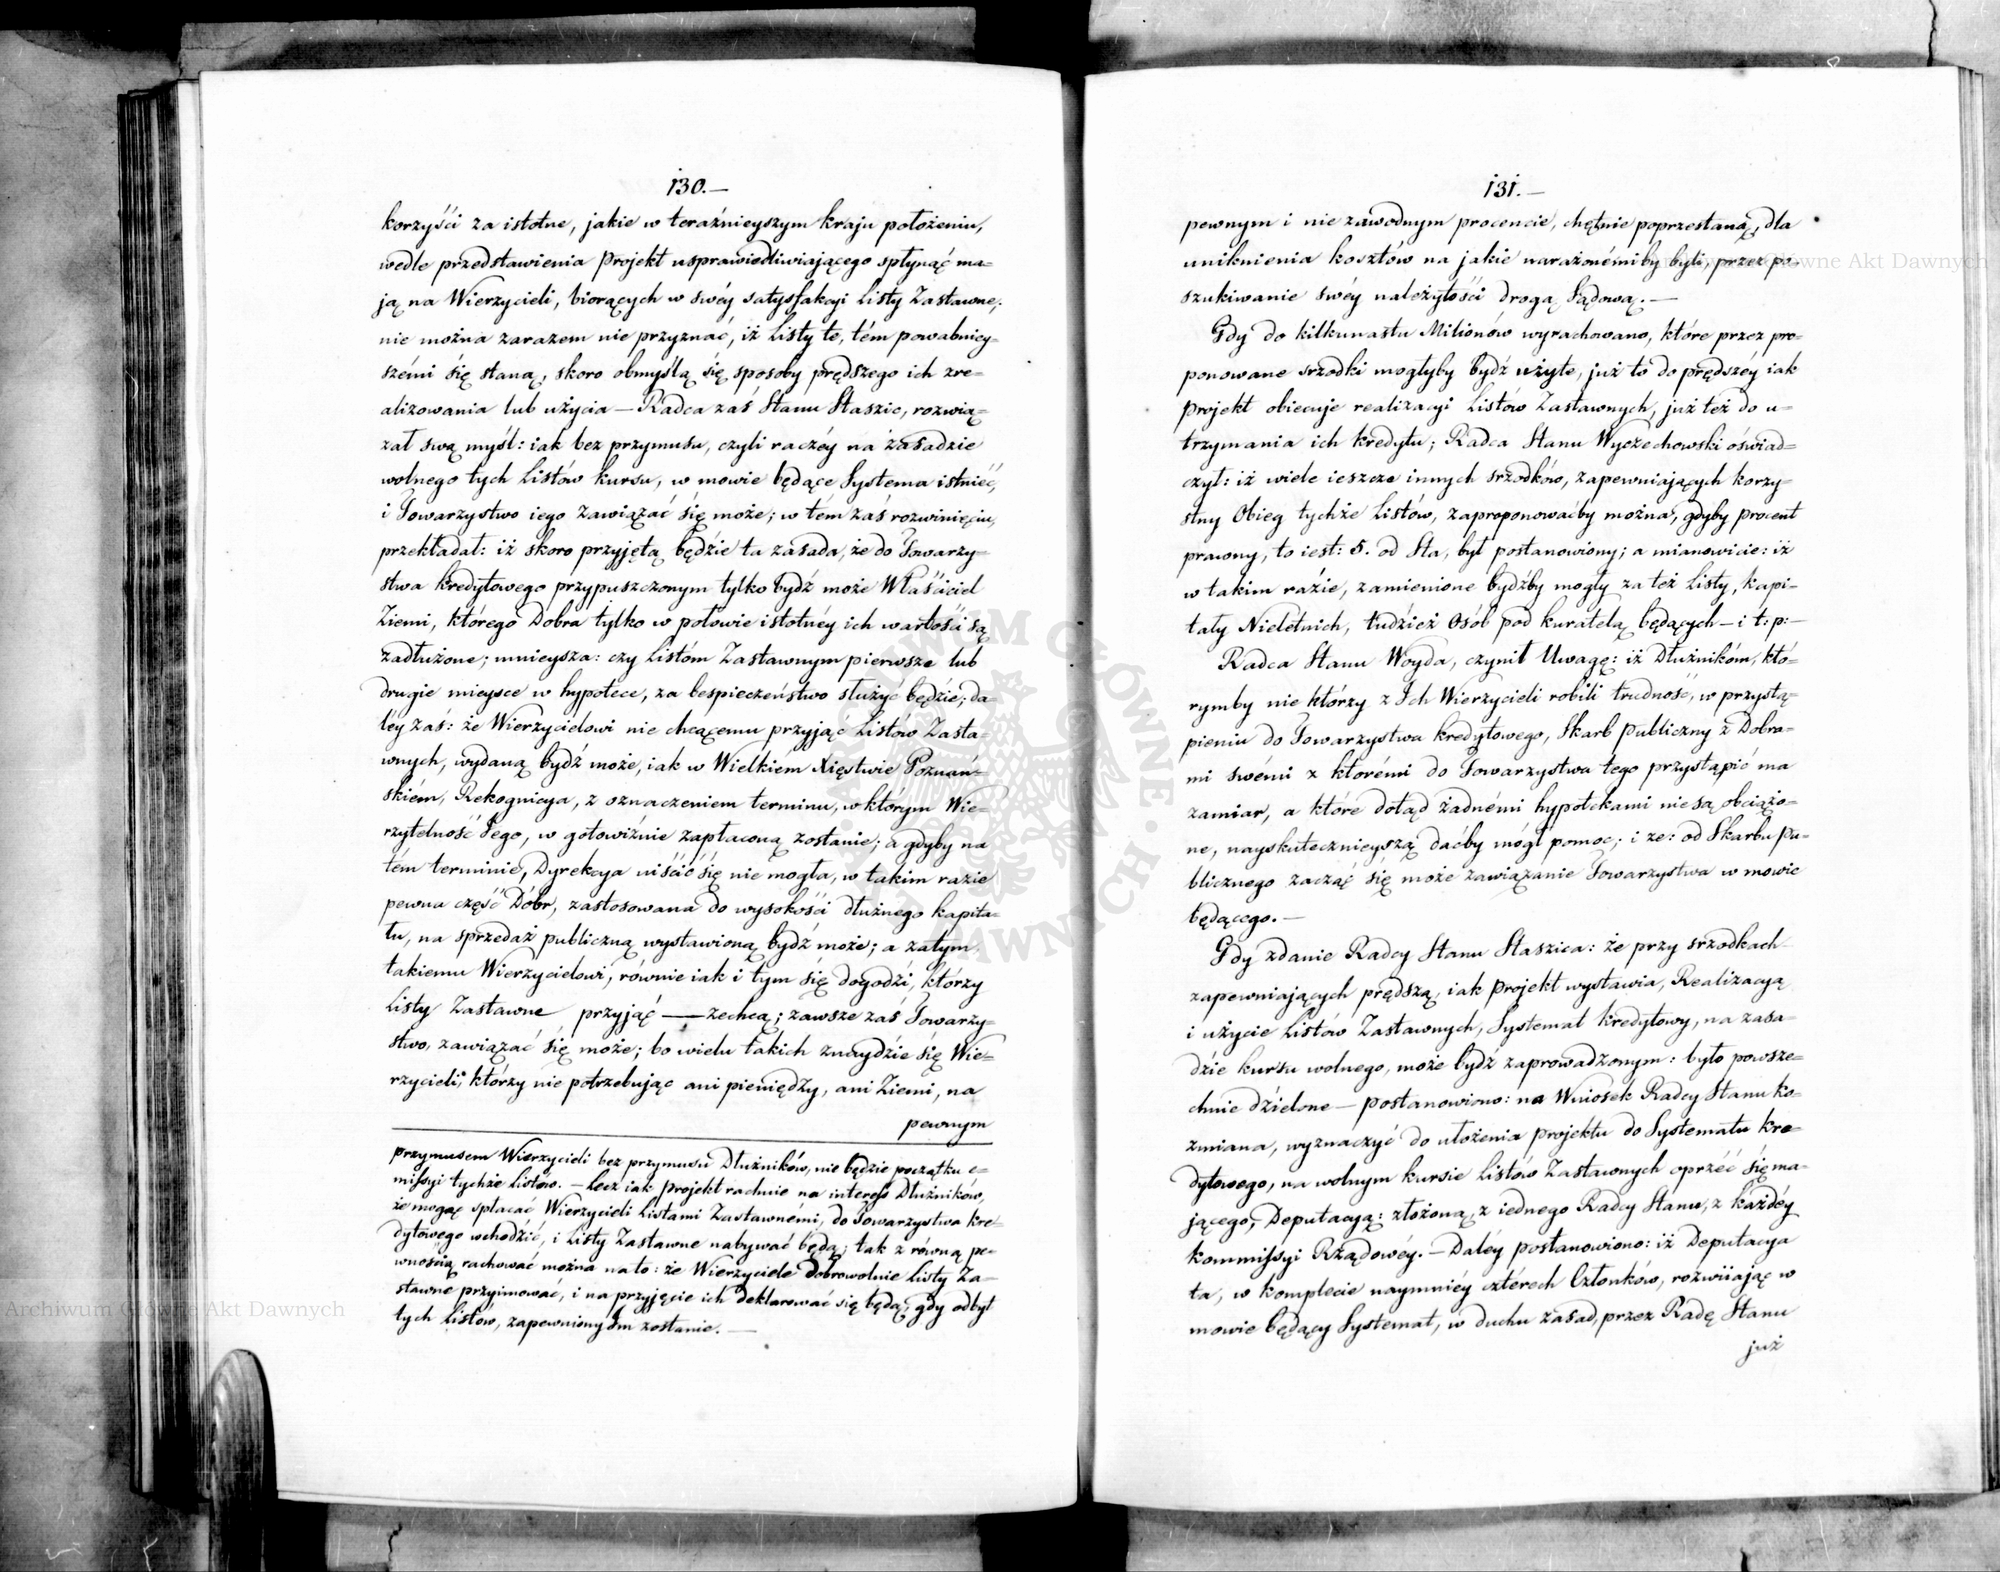 130.—
korzyśći za istotne, jakie w teraźnieyszym kraju położeniu,
wedle przedstawienia Projekt usprawiedliwiającego spłynąć ma=
ją na Wierzycieli, biorących w swéy satysfakcyi Listy Zastawne;
nie można zarazem nie przyznać, iż Listy te, tém powabniey=
szémi się staną, skoro obmyślą się sposoby prędszego ich zre=
alizowania lub użycia — Radca zaś Stanu Staszic, rozwią=
zał swą myśl: iak bez przymusu, czyli raczéy na zasadzie
wolnego tych Listów kursu, w mowie będące Systema istnieć,
i Towarzystwo iego zawiązać się może; w tém zaś rozwinięciu,
przekładał: iż skoro przyjętą będzie ta zasada, że do Towarzy=
stwa kredytowego przypuszczonym tylko bydź może Właściciel
Ziemi, którego Dobra tylko w połowie istotnéy ich wartośći są
zadłużone; mnieysza: czy Listom Zastawnym pierwsze lub
drugie mieysce w hypotece, za bespieczeństwo służyć będzie; da=
léy zaś: że Wierzycielowi nie chcącemu przyjąć Listów Zasta=
wnych, wydaną bydź może, iak w Wielkiem Xięstwie Poznań=
skiém, Rekognicya, z oznaczeniem terminu, w którym Wie=
rzytelność Jego, w gotowiźnie zapłaconą zostanie; a gdyby na
tém terminie, Dyrekcya uiśćić się nie mogła, w takim razie
pewna część Dóbr, zastosowana do wysokośći dłużnego kapita=
łu, na sprzedaż publiczną wystawioną bydź może; a zatym
takiemu Wierzycielowi, równie iak i tym się dogodzi, którzy
Listy Zastawne przyjąć — zechcą; zawsze zaś Towarzy=
stwo, zawiązać się może; bo wielu takich znaydzie się Wie=
rzycieli, którzy nie potrzebując ani pieniędzy, ani Ziemi, na
pewnym
przymusem Wierzycieli bez przymusu Dłużników, nie będzie początku e=
missyi tychże Listów. — Lecz iak projekt rachuie na interess Dłużników,
że mogąc spłacać Wierzycieli Listami Zastawnémi, do Towarzystwa kre=
dytowego wchodzić, i Listy Zastawne nabywać będą; tak z równą pe=
wnością rachować można na to: że Wierzyciele dobrowolnie Listy Za=
stawne przyimować, i na przyjęcie ich deklarować się będą, gdy odbyt
tych Listów, zapewniony Im zostanie. —
131.—
pewnym i nie zawodnym procencie, chętnie poprzestaną, dla
uniknienia kosztów na jakie narażonémi by byli, przez po=
szukiwanie swéy należytośći drogą Sądową. —
Gdy do kilkunastu Milionów wyrachowano, które przez pro=
ponowane srzodki mogłyby bydź użyte, już to do prędszéy iak
projekt obiecuje realizacyi Listów Zastawnych, już też do u=
trzymania ich kredytu; Radca Stanu Wyczechowski oświad=
czył: iż wiele ieszcze innych srzodków, zapewniających korzy=
stny Obieg tychże Listów, zaproponowaćby można, gdyby procent
prawny, to iest: 5. od Sta, był postanowiony; a mianowicie: iż
w takim razie, zamienione bydźby mogły za też Listy, kapi=
tały Nieletnich, tudzież Osób pod kuratelą będących — i t: p: —
Radca Stanu Woyda, czynił Uwagę: iż Dłużnikóm, któ=
rymby nie którzy z Ich Wierzycieli robili trudność, w przystą=
pieniu do Towarzystwa kredytowego, Skarb publiczny z Dobra=
mi swémi z którémi do Towarzystwa tego przystąpić ma
zamiar, a które dotąd żadnémi hypotekami nie są obciążo=
ne, nayskutecznieyszą daćby mógł pomoc; i że: od Skarbu pu=
blicznego zacząć się może zawiązanie Towarzystwa w mowie
będącego. —
Gdy zdanie Radcy Stanu Staszica: że przy srzodkach
zapewniających prędszą, iak Projekt wystawia, Realizacyą
i użycie Listów Zastawnych, Systemat kredytowy, na zasa=
dzie kursu wolnego, może bydź zaprowadzonym: było powsze=
chnie dzielone — postanowiono: na Wniosek Radcy Stanu Ko=
zmiana, wyznaczyć do ułożenia projektu do Systematu kre=
dytowego, na wolnym kursie Listów Zastawnych oprzéć się ma=
jącego, Deputacyą: złożoną, z iednego Radcy Stanu, z każdéy
kommissyi Rządowéy. — Daléy postanowiono: iż Deputacya
ta, w komplecie naymniéy cztérech Członków, rozwiiając w
mowie będący Systemat, w duchu zasad, przez Radę Stanu
już
Archiwum Główne Akt Dawnych
Archiwum Główne Akt Dawnych
ARCHIWUM GŁÓWNE AKT DAWNYCH